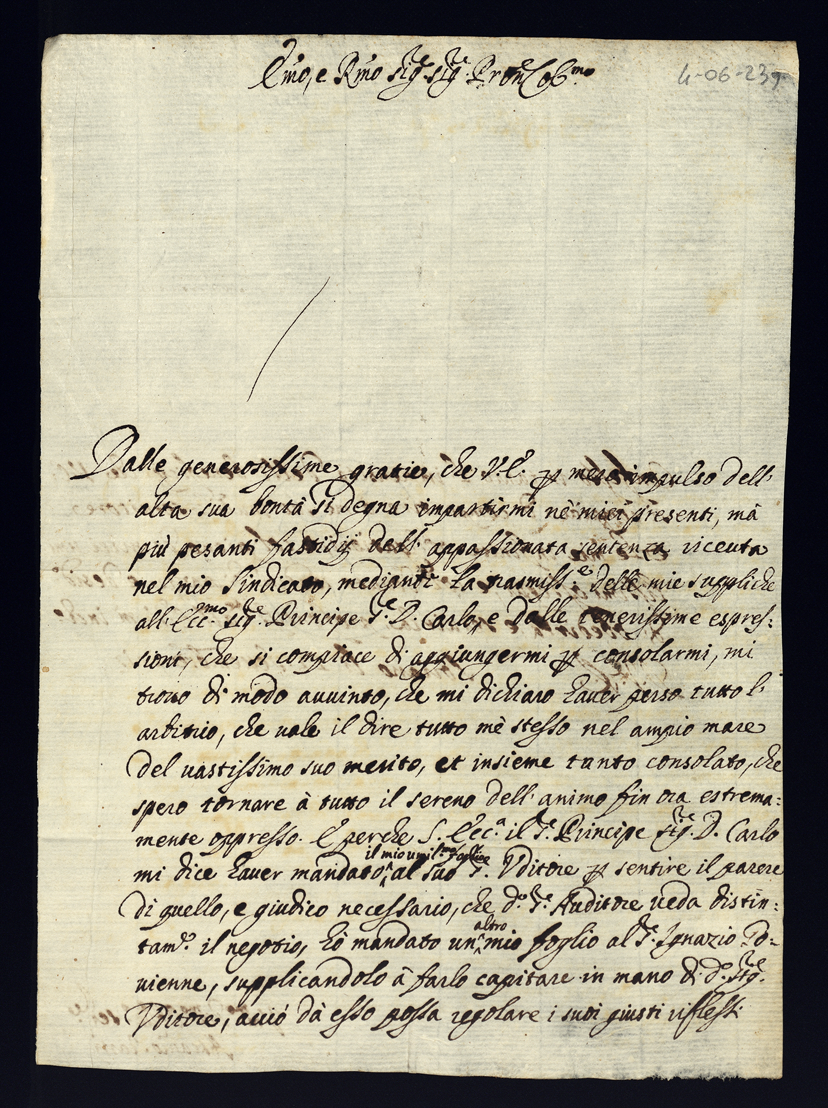 Emo, e Rmo Sig.re Sig.re Pron Col.mo
4-06-239
Dalle generosissime gratie, che V.E. p mero impulso dell'
alta sua bontà si degna impartirmi nè miei presenti, mà
più pesanti fastidij dell'appassionata sentenza riceuta
nel mio Sindicato, mediante la trasmiss.e delle mie suppliche
all'Ecc.mo Sig.re Principe S.r D. Carlo, e dalle tenerissime espres:
sioni, che si compiace di aggiungermi p consolarmi, mi
trovo di modo avvinto, che mi dichiaro haver perso tutto l'
arbitrio, che vale il dire tutto mè stesso nel ampio mare
del vastissimo suo merito, et insieme tanto consolato, che
spero tornare à tutto il sereno dell'animo fin ora estrema:
mente oppresso. E perche S. Ecc.a il S.r Principe Sig.re D. Carlo
mi dice haver mandato il mio umil.mo foglio al suo S.r Vditore p sentire il parere
di quello, e giudico necessario, che d.o S.r Auditore veda distin:
tam.e il negotio, hò mandato un altro mio foglio al S.r Ignazio Po-
vienne, supplicandolo à farlo capitare in mano di d.o Sig.re
Vditore, acciò dà esso possa regolare i suoi giusti riflessi